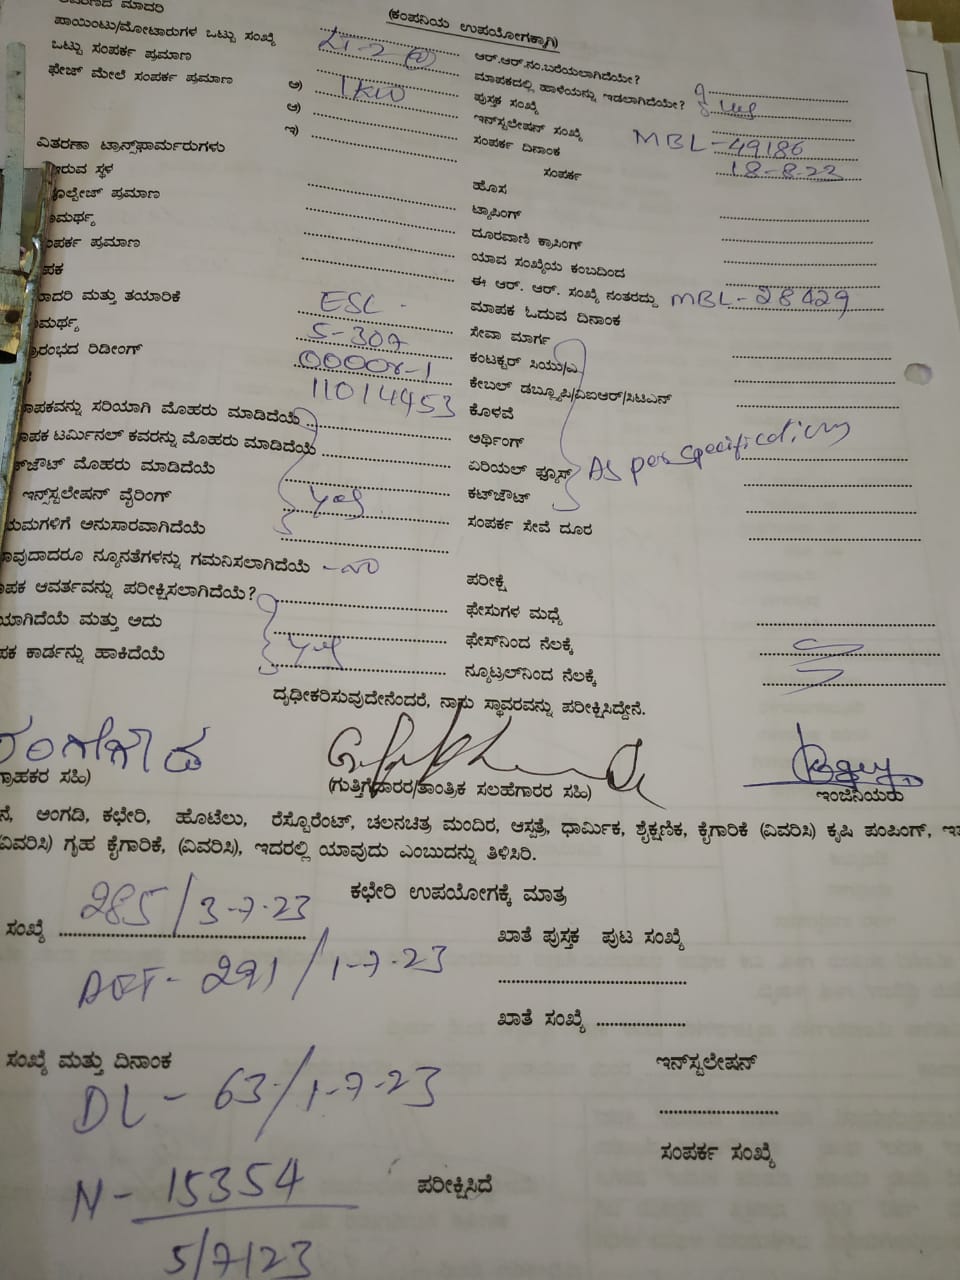 (ಕಂಪನಿಯ ಉಪಯೋಗಕ್ಕಾಗಿ)
ಮಾದರಿ
ಪಾಯಿಂಟು/ಮೋಟಾರುಗಳ ಒಟ್ಟು ಸಂಖ್ಯೆ
ಆರ್.ಆರ್.ನಂ.ಬರೆಯಲಾಗಿದೆಯೇ?
ಒಟ್ಟು ಸಂಪರ್ಕ ಪ್ರಮಾಣ
ಮಾಪಕದಲ್ಲಿ ಹಾಳೆಯನ್ನು ಇಡಲಾಗಿದೆಯೇ?
ಫೇಜ್ ಮೇಲೆ ಸಂಪರ್ಕ ಪ್ರಮಾಣ ಅ) 1KW ಪುಸ್ತಕ ಸಂಖ್ಯೆ
ಆ) ಇನ್‌ಸ್ಟಲೇಷನ್ ಸಂಖ್ಯೆ MBL-49186
ಇ) ಸಂಪರ್ಕ ದಿನಾಂಕ 18-8-23
ವಿತರಣಾ ಟ್ರಾನ್ಸ್‌ಫಾರ್ಮರುಗಳು ಸಂಪರ್ಕ
ಇರುವ ಸ್ಥಳ ಹೊಸ
ವೋಲ್ಟೇಜ್ ಪ್ರಮಾಣ ಟ್ಯಾಪಿಂಗ್
ದೂರವಾಣಿ ಕ್ರಾಸಿಂಗ್
ಸಂಪರ್ಕ ಪ್ರಮಾಣ ಯಾವ ಸಂಖ್ಯೆಯ ಕಂಬದಿಂದ
ಈ ಆರ್. ಆರ್. ಸಂಖ್ಯೆ ನಂತರದ್ದು MBL-28429
ಮಾದರಿ ಮತ್ತು ತಯಾರಿಕೆ ESL ಮಾಪಕ ಓದುವ ದಿನಾಂಕ
5-30A ಸೇವಾ ಮಾರ್ಗ
ಪ್ರಾರಂಭದ ರಿಡೀಂಗ್ ಕಂಟಕ್ಟರ್ ಸಿಯು/ಎ
11014453 ಕೇಬಲ್ ಡಬ್ಲ್ಯೂಪಿ/ವಿಐಆರ್/ಸಿಟಿಎನ್
ಮಾಪಕವನ್ನು ಸರಿಯಾಗಿ ಮೊಹರು ಮಾಡಿದೆಯೆ ಕೊಳವೆ
ಮಾಪಕ ಟರ್ಮಿನಲ್ ಕವರನ್ನು ಮೊಹರು ಮಾಡಿದೆಯೆ ಅರ್ಥಿಂಗ್
ಕಟ್‌ಔಟ್ ಮೊಹರು ಮಾಡಿದೆಯೆ ಏರಿಯಲ್ ಫ್ಯೂಸ್ As per specification
ಇನ್‌ಸ್ಟಲೇಷನ್ ವೈರಿಂಗ್ Yes ಕಟ್‌ಔಟ್
ನಿಯಮಗಳಿಗೆ ಅನುಸಾರವಾಗಿದೆಯೆ ಸಂಪರ್ಕ ಸೇವೆ ದೂರ
ಯಾವುದಾದರೂ ನ್ಯೂನತೆಗಳನ್ನು ಗಮನಿಸಲಾಗಿದೆಯೆ -no ಪರೀಕ್ಷೆ
ಮಾಪಕ ಆವರ್ತವನ್ನು ಪರೀಕ್ಷಿಸಲಾಗಿದೆಯೆ? ಫೇಸುಗಳ ಮಧ್ಯೆ
ಯಾಗಿದೆಯೆ ಮತ್ತು ಅದು ಫೇಸ್‌ನಿಂದ ನೆಲಕ್ಕೆ
ಮಾಪಕ ಕಾರ್ಡನ್ನು ಹಾಕಿದೆಯೆ Yes ನ್ಯೂಟ್ರಲ್‌ನಿಂದ ನೆಲಕ್ಕೆ
ದೃಢೀಕರಿಸುವುದೇನೆಂದರೆ, ನಾನು ಸ್ಥಾವರವನ್ನು ಪರೀಕ್ಷಿಸಿದ್ದೇನೆ.
ಗ್ರಾಹಕರ ಸಹಿ) (ಗುತ್ತಿಗೆದಾರರ/ತಾಂತ್ರಿಕ ಸಲಹೆಗಾರರ ಸಹಿ) ಇಂಜಿನಿಯರು
ಅಂಗಡಿ, ಕಛೇರಿ, ಹೊಟೆಲು, ರೆಸ್ಟೊರೆಂಟ್, ಚಲನಚಿತ್ರ ಮಂದಿರ, ಆಸ್ಪತ್ರೆ, ಧಾರ್ಮಿಕ, ಶೈಕ್ಷಣಿಕ, ಕೈಗಾರಿಕೆ (ವಿವರಿಸಿ) ಕೃಷಿ ಪಂಪಿಂಗ್,
ವಿವರಿಸಿ) ಗೃಹ ಕೈಗಾರಿಕೆ, (ವಿವರಿಸಿ), ಇದರಲ್ಲಿ ಯಾವುದು ಎಂಬುದನ್ನು ತಿಳಿಸಿರಿ.
ಕಛೇರಿ ಉಪಯೋಗಕ್ಕೆ ಮಾತ್ರ
ಸಂಖ್ಯೆ 285/3-7-23 ಖಾತೆ ಪುಸ್ತಕ ಪುಟ ಸಂಖ್ಯೆ
291/1-7-23
ಖಾತೆ ಸಂಖ್ಯೆ
ಸಂಖ್ಯೆ ಮತ್ತು ದಿನಾಂಕ ಇನ್‌ಸ್ಟಲೇಷನ್
DL-63/1-7-23
ಸಂಪರ್ಕ ಸಂಖ್ಯೆ
N-15354 ಪರೀಕ್ಷಿಸಿದೆ
5/7/23